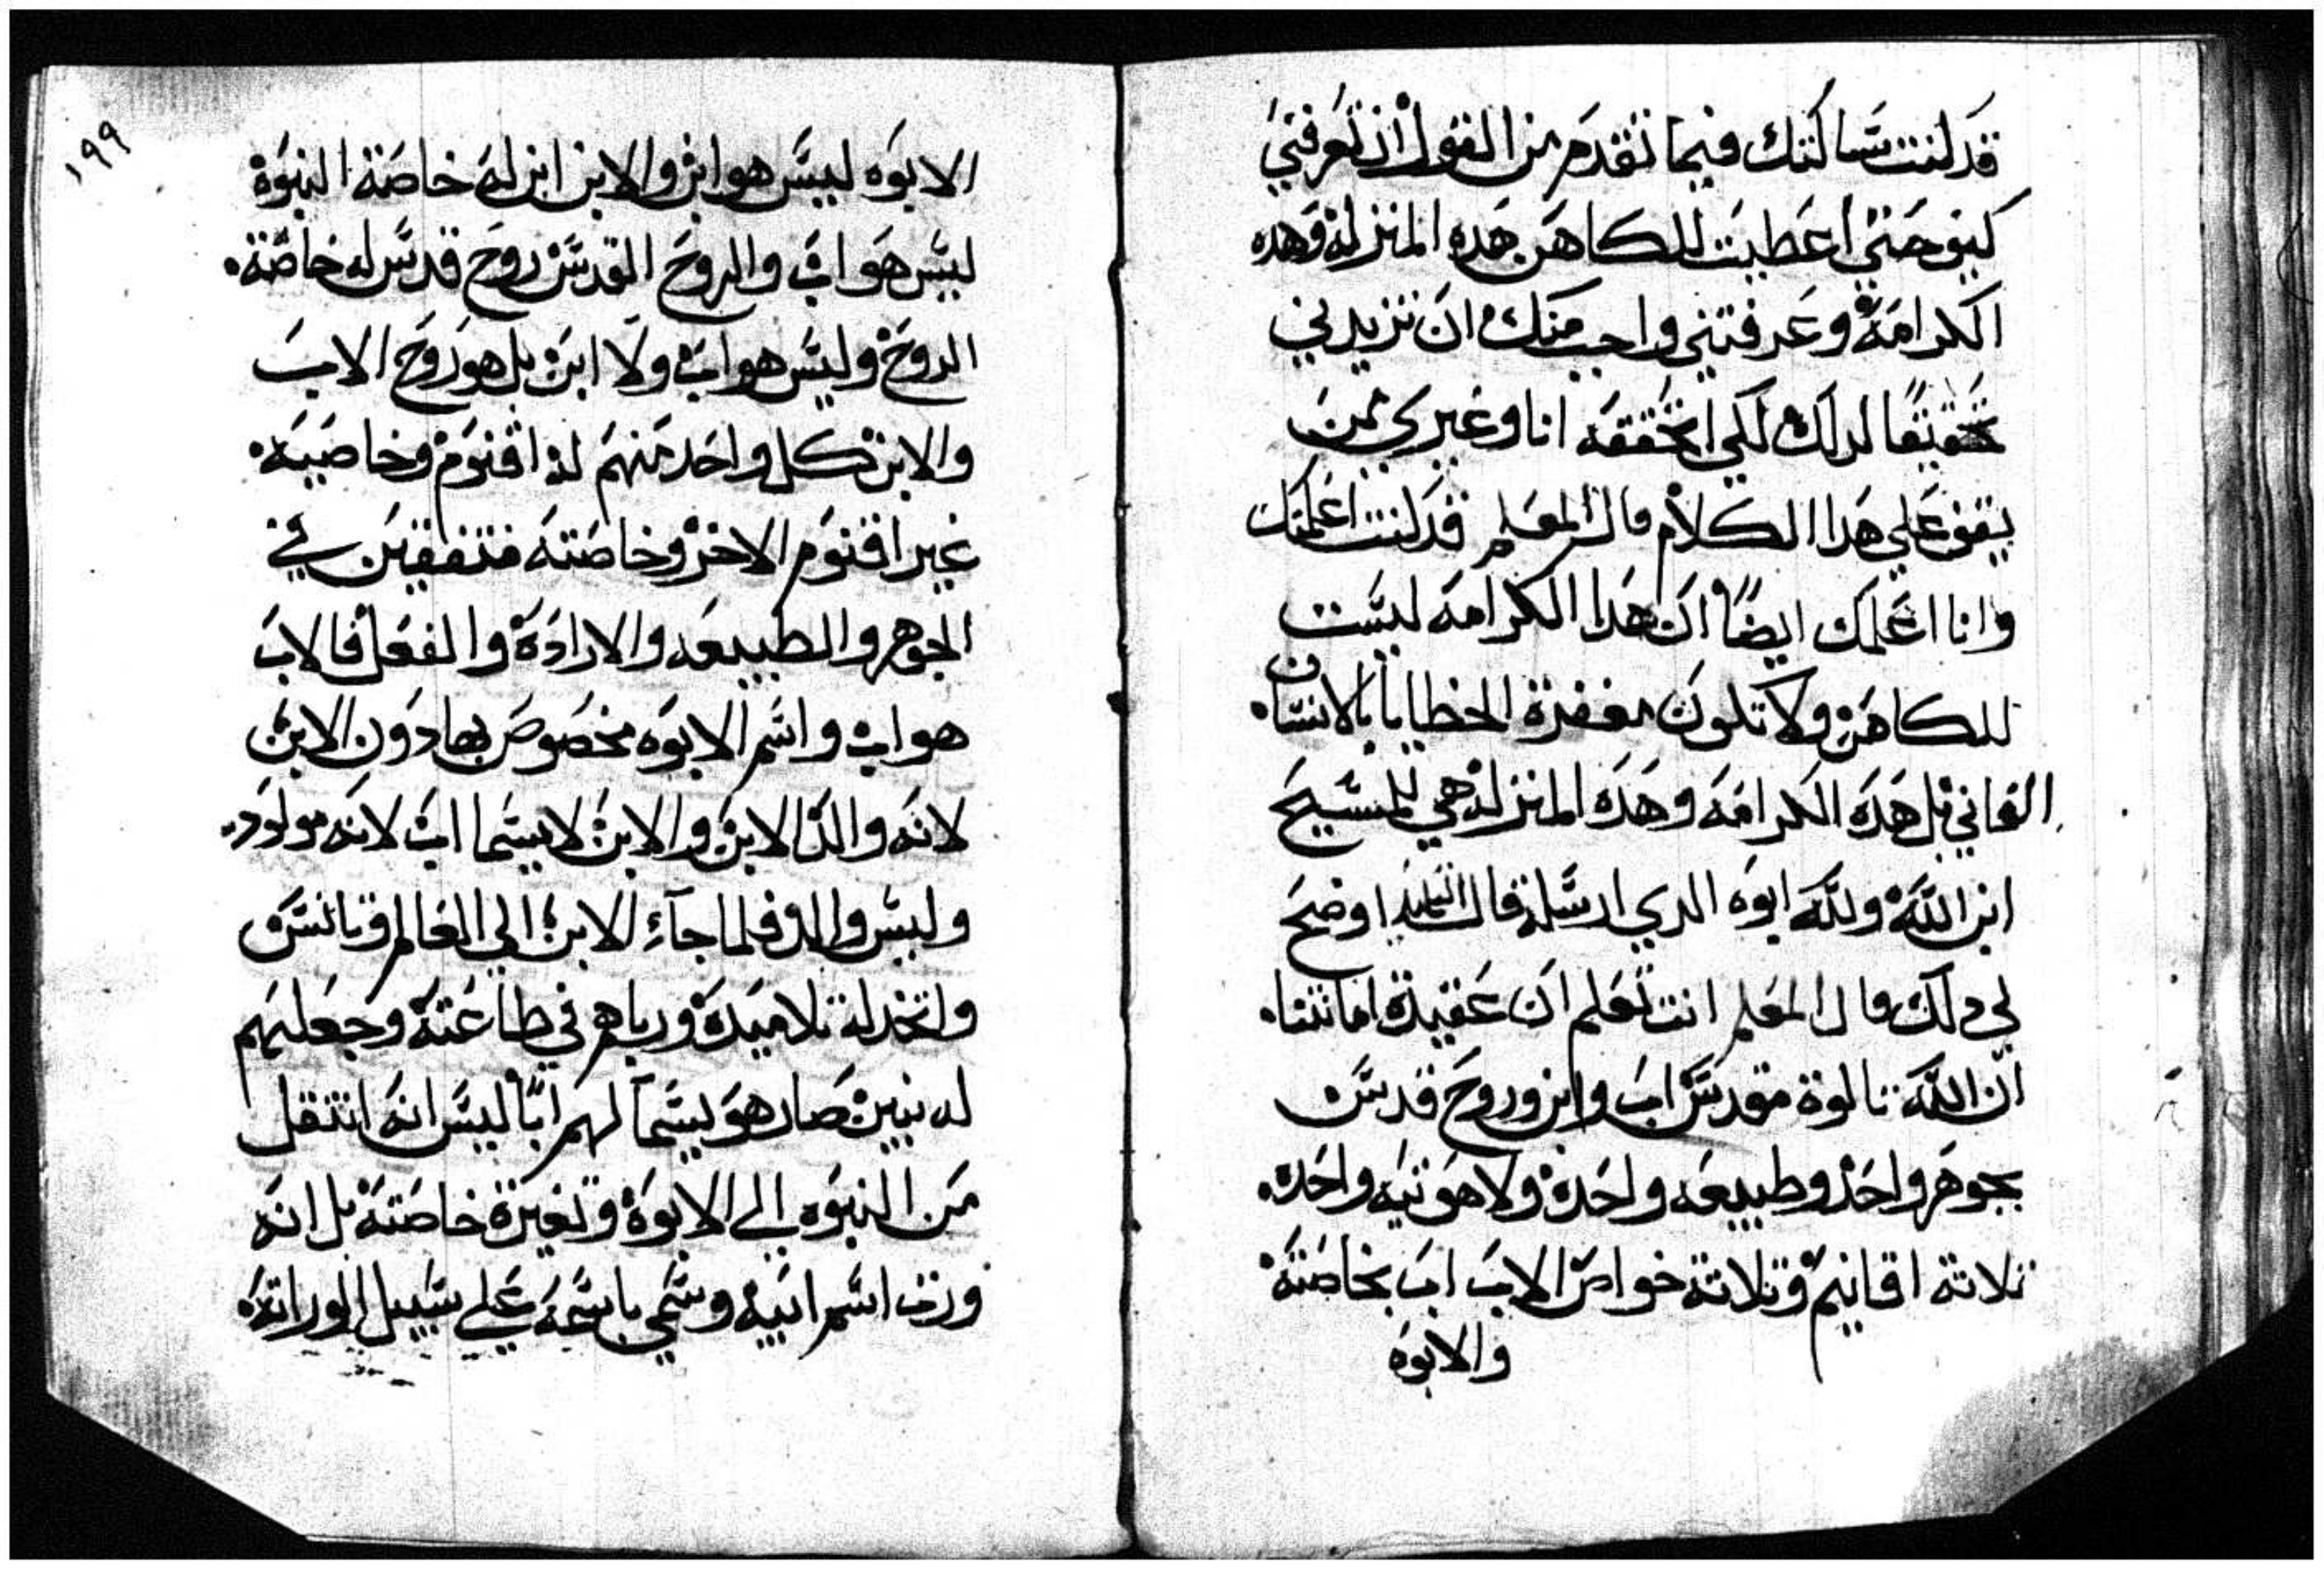 قد كنت سالتك فيما تقدم من القول ان تعرفني
كيف حتي اعطيت للكاهن هده المنزله وهده
الكرامه وعرفتني واجب منك ان تزيدني
تحقيقا لدلك لكي اتحققه انا وغيري ممن
يقف علي هدا الكلام قال المعلم قد كنت اعلمتك
وانا اعلمك ايضًا ان هدا الكرامه ليست
للكاهن ولا تكون مغفرة الخطايا بالانسان
الفاني بل هده الكرامه وهده المنزله هي للمسيح
ابن الله ولله ابوه الدي ارسله قال التلميد اوضح
لي دلك قال المعلم انت تعلم ان عقيدة امانتنا
ان الله تالوة مقدس اب وابن وروح قدس
بجوهر واحد وطبيعه واحدة ولاهوتيه واحده
تلاتة اقانيم وتلاتة خواص الاب اب بخاصته
والابوه
١٩٩
الابوه ليس هو ابن والابن ابن له خاصة البنوة
ليس هو اب والروح القدس روح قدس له خاصة
الروح وليس هو اب ولا ابن بل هو روح الاب
والابن كل واحد منهم له اقنوم وخاصيه
غير اقنوم الاخر وخاصته متفقين في
الجوهر والطبيعه والارادة والفعل فالاب
هو اب واسم الابوه مخصوص بها دون الابن
لانه والد الابن والابن لا يسما اب لانه مولود
وليس والد فلما جآء الابن الي العالم وتانس
واتخد له تلاميده ورباهم في طاعته وجعلهم
له بنين صار هو يسمآ لهم ابًا ليس انه انتقل
من البنوه الي الابوة وتغيرة خاصته بل انه
ورت اسم ابيه وسمي باسمه علي سبيل الوراته